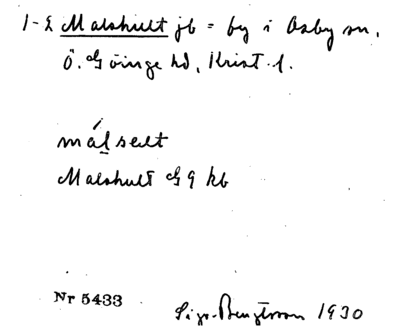 1-2 Malshult jb = by i Osby sn,
Ö. Göinge hd, Krist. l.
målselt
Malshult G9 kb
Nr 5433
Sigv. Bengtsson 1930